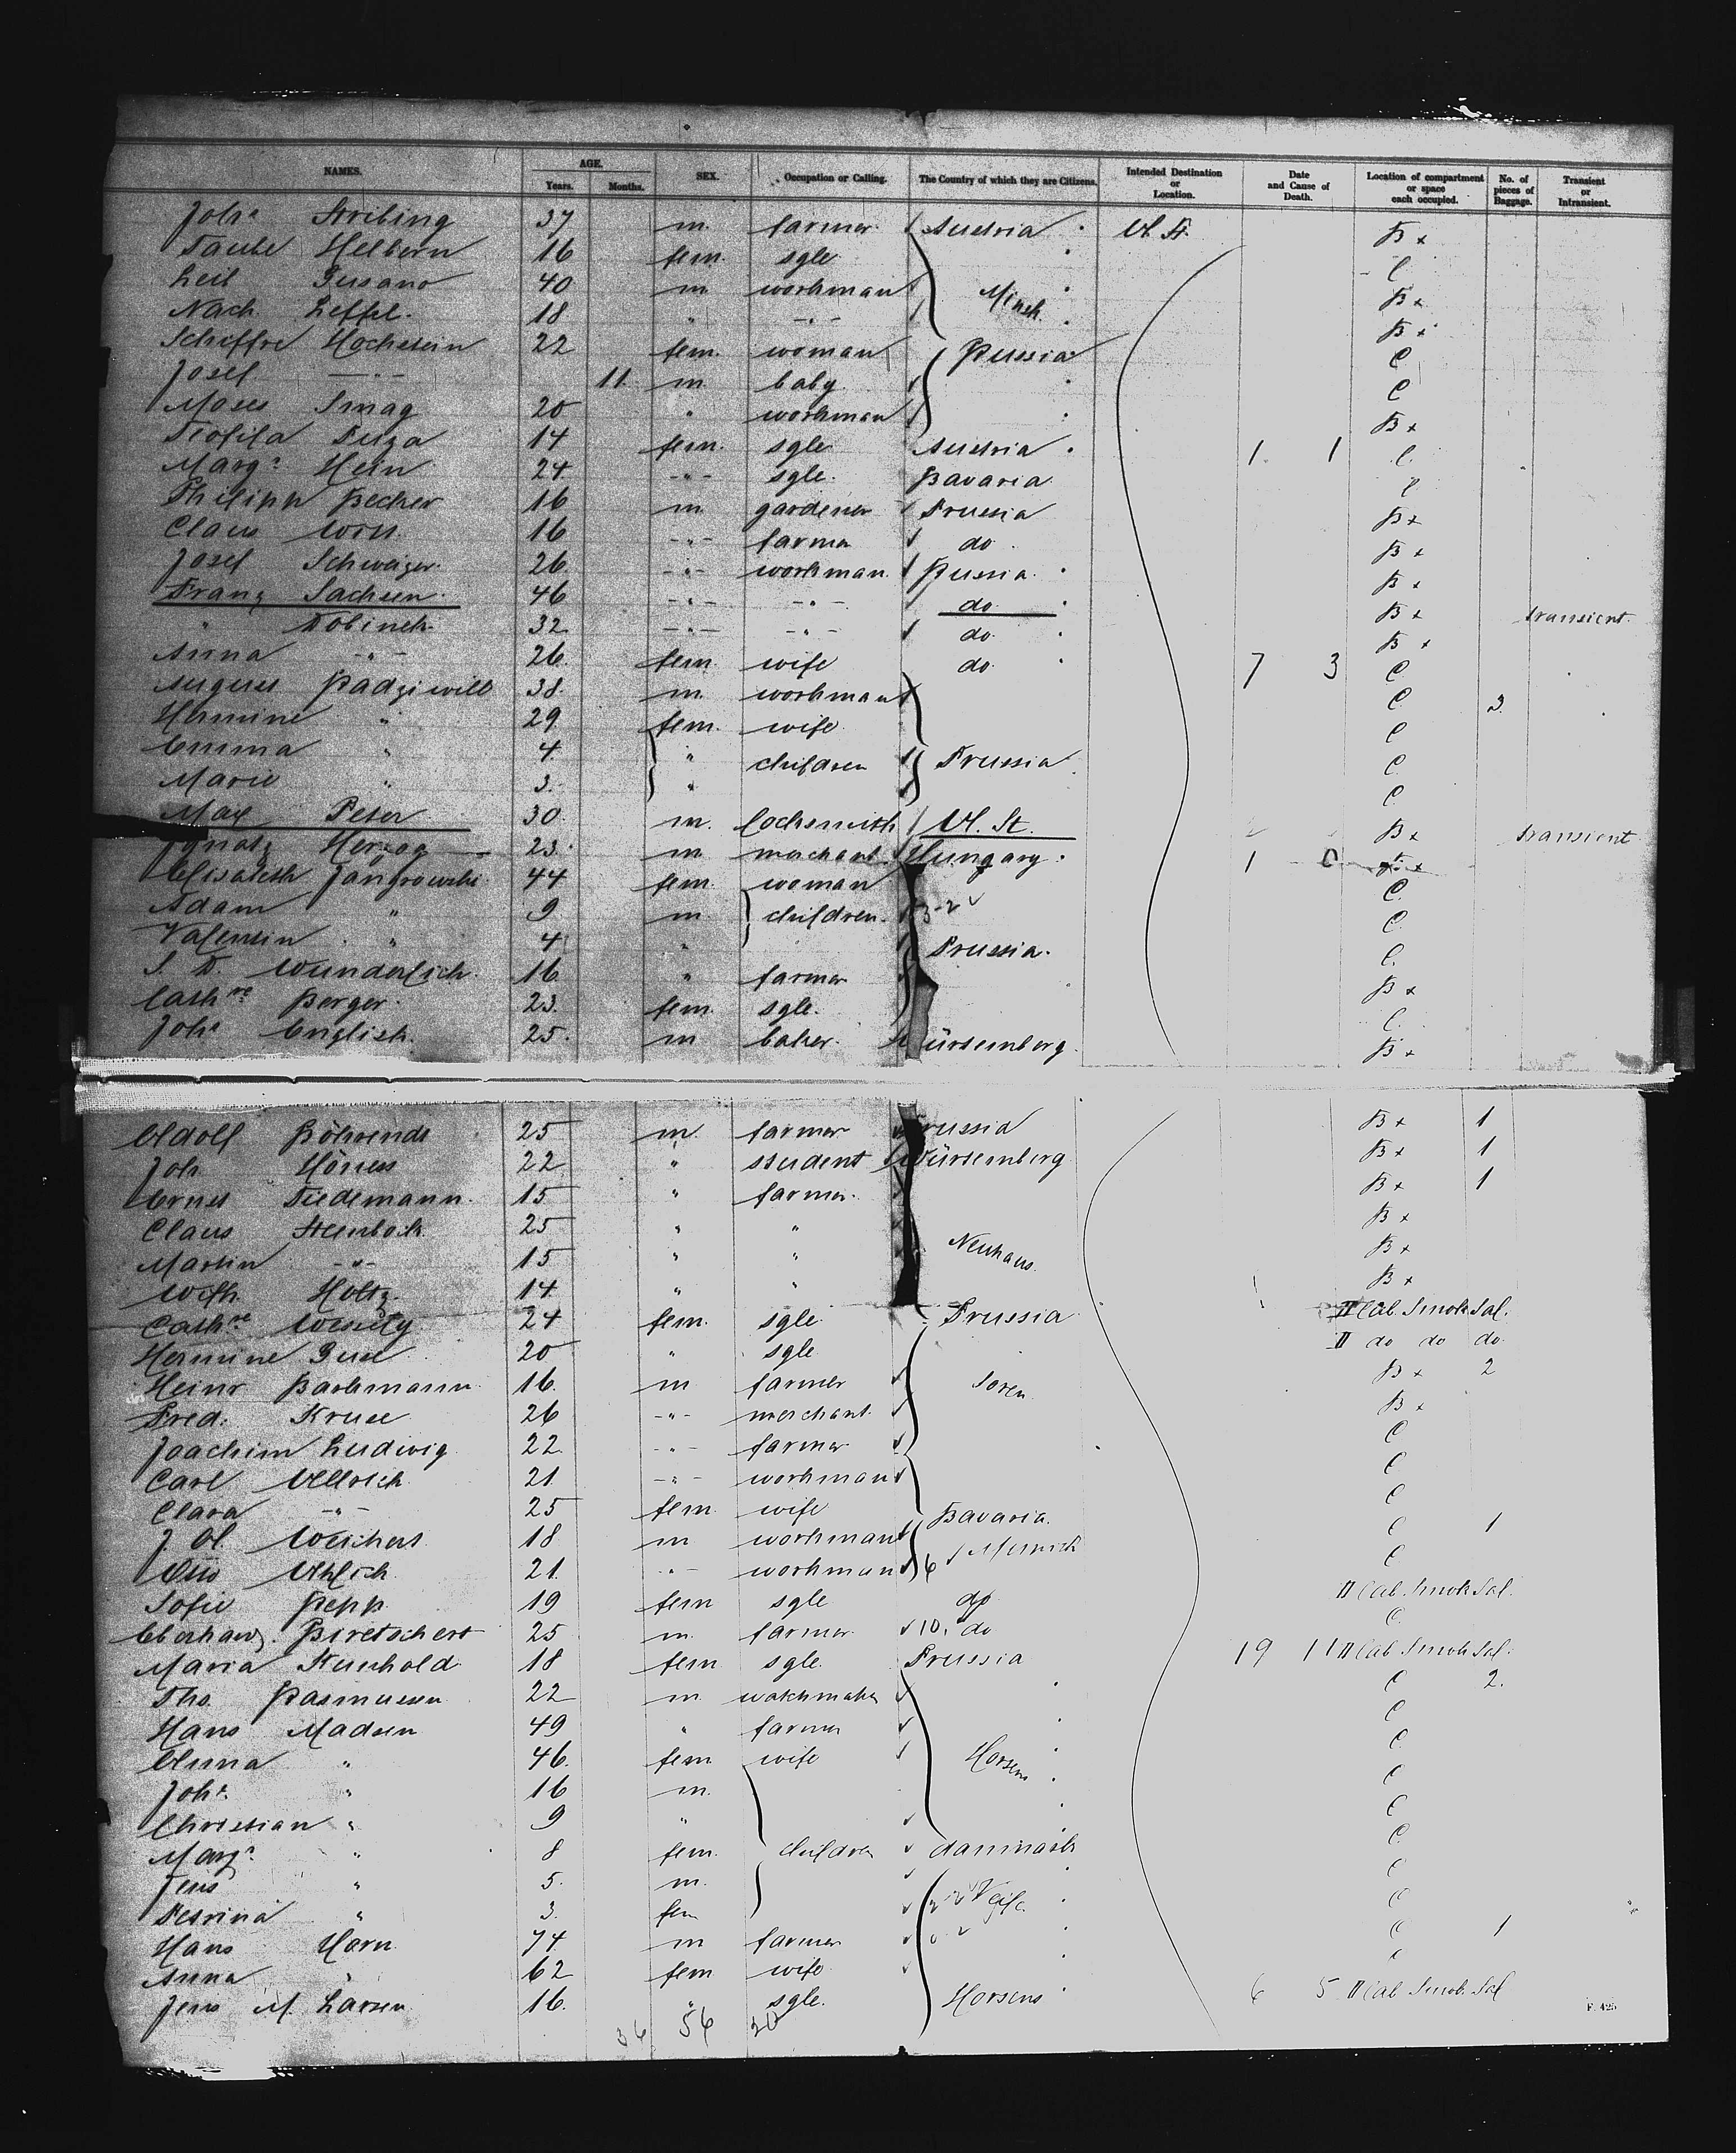 NAMES. AGE. Years. Months. SEX. Occupation or Calling. The Country of which they are Citizens. Intended Destination or Location. Date and Cause of Death. Location of compartment or space each occupied. No. of pieces of Baggage. Transient or Intransient.
Johs Stribing 37 m farmer Austria U. St. B x
Taube Helbern 16 fem. sgle C
Leib 40 m workman Minsk B x
Nach Leffel 18 " -"- B x
Schiffre Hochstein 22 fem. woman Russia C
Josef -"- 11 m baby C
Moses Smag 20 " workman B x
Teofila 14 fem. sgle Austria 1 1 C.
Margs Hein 24 -"- sgle. Bavaria C
Philipp Becker 16 m gardener Prussia B x
Claus 16 -"- farmer do B x
Josef Schwaiger 26 -"- workman Russia B x
Franz Sachsen 46 -"- -"- do B x transient
" Dobinek 32 -"- -"- do B x
Anna -"- 26 fem. wife do 7 3 C
August Radziwill 38 m. workman C 3
Hermine " 29 fem. wife C
Emma " 4 " children Prussia C.
Marie " 3 " C
Max Peter 30 m. locksmith U. St. B x transient
Ignatz Herzog 23 m merchant Hungary 1 0
Elisabeth Jangrowski 44 fem. woman C.
Adam " 9 m children C.
Valentin " 4 " Prussia. C.
S. D. Wunderlich 16 " farmer B x
Cathne Berger 23 fem. sgle. C.
Johs English 25 m baker Würtemberg B x
Adolf Böhrends 25 m. farmer Prussia B x 1
Joh. Höness 22 " student Würtemberg B x 1
Ernst Tiedemann 15 " farmer B x 1
Claus Steinbock 25 " " B x
Martin -"- 15 " " Neuhaus B x
Wilh. Holtz 14 " B x
Cathne 24 fem. sgle Prussia II Cab. Smok Sal.
Hermine Guse 20 " sgle II do do do
Heinr Bachmann 16 m farmer B x 2
Fred. Kruse 26 -"- merchant B x
Joachim Ludwig 22 -"- farmer C
Carl Ullrich 21 -"- workman C
Clara -"- 25 fem wife Bavaria. C
J. A. Weichert 18 m workman Munich C 1
Otto Uhlich 21 -"- workman 6 C
Sofie Repp 19 fem sgle do II Cab. Smok Sal.
Eberhard 25 m. farmer 10 do C
Maria Kunhold 18 fem sgle. Prussia 19 11 II Cab Smok Sal.
Ths. Rasmussen 22 m. watchmaker C 2.
Hans Madsen 49 " farmer C
Anna " 46 fem wife Horsens C
Johs " 16 m. C
Christian " 9 " C
Margs " 8 fem. children Dannmark C
Jens " 5. m. C
Petrina " 3. fem Veile C
Hans Horn 74 m farmer C 1
Anna " 62 fem wife C
Jens M. Larsen 16. " sgle. Horsens 6 5 II Cab Smok Sal
36 56 20
F. 425